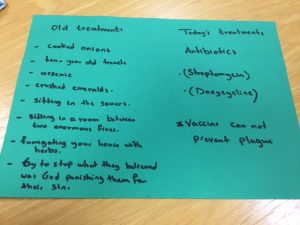 Old treatments
- Cooked onions
- ten-year old treacle
- arsenic
- crushed emeralds.
- Sitting in the sewers.
- sitting in a room between
two enormous fires.
- fumigating your house with
herbs.
- try to stop what they believed
was God punishing them for
their sin.
Today's treatments
Antibiotics
. (Streptomycin)
. (Doxycycline)
* Vaccine can not
prevent plague